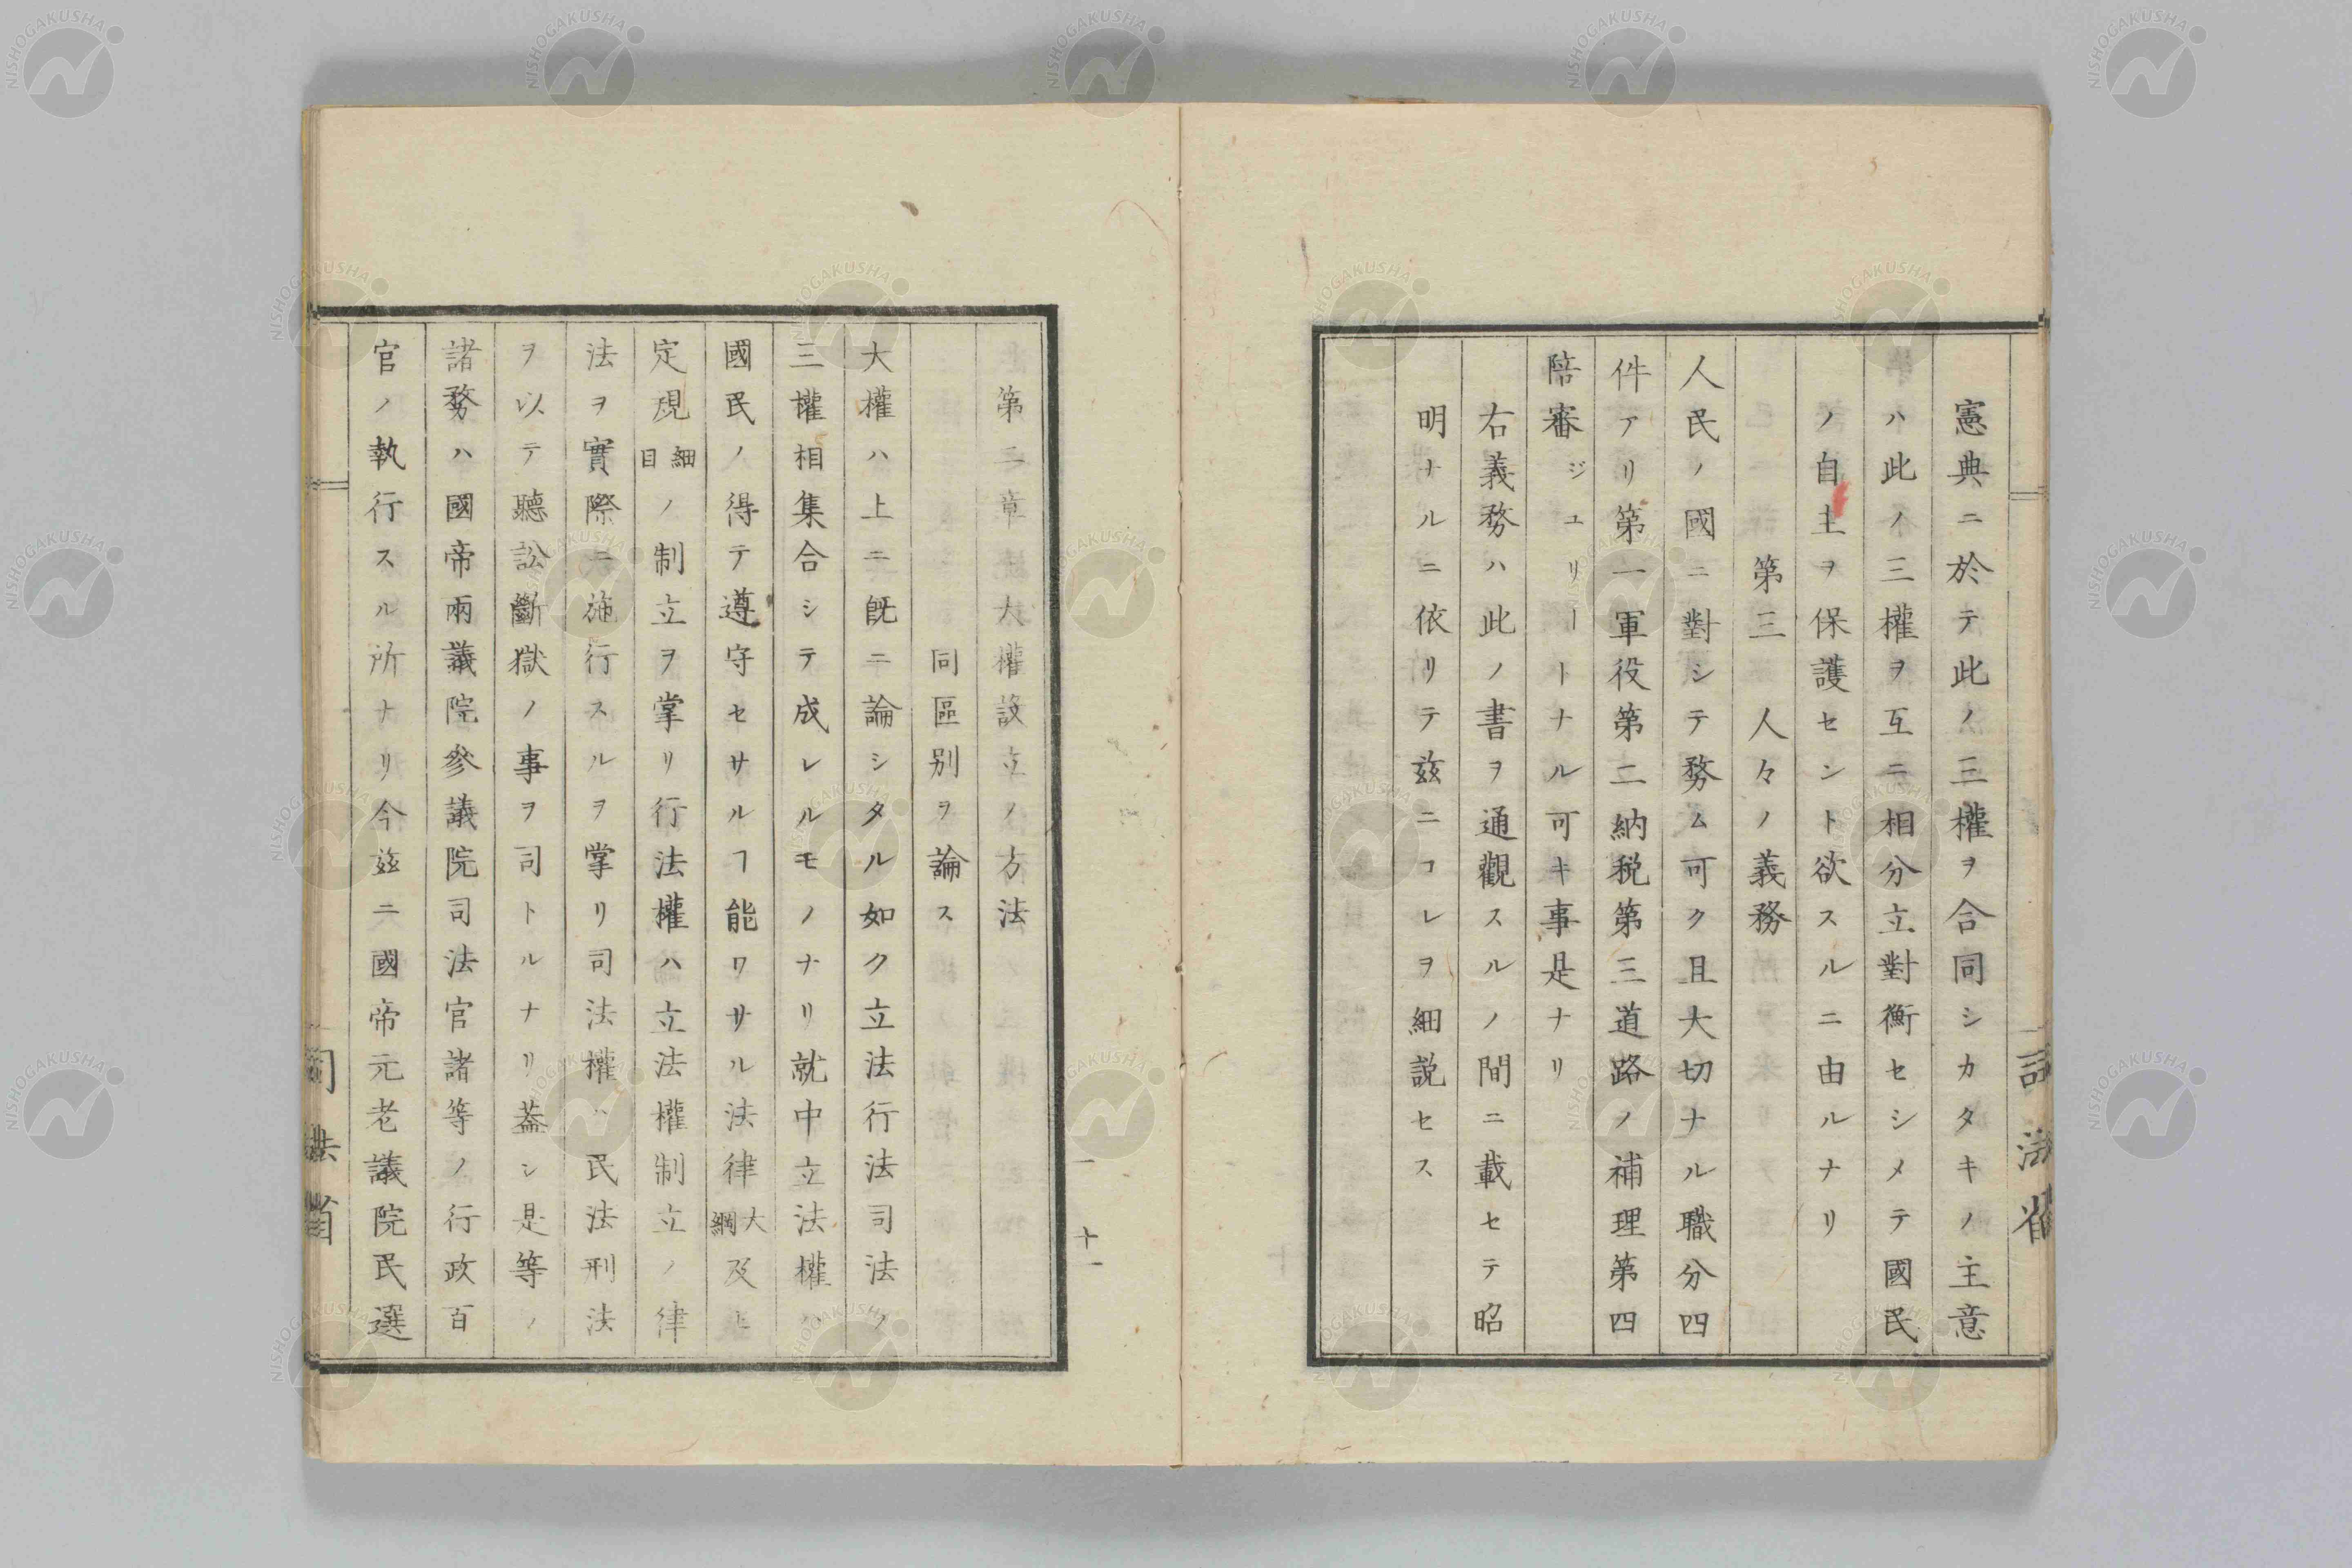 憲典ニ於テ此ノ三權ヲ合同シカタキノ主意
ハ此ノ三權ヲ互ニ相分立對衡セシメテ國民
ノ自主ヲ保護セント欲スルニ由ルナリ
第三 人々ノ義務
人民ノ國ニ對シテ務ム可ク且大切ナル職分四
件アリ第一軍役第二納税第三道路ノ補理第四
陪審ジユリートナル可キ事是ナリ
右義務ハ此ノ書ヲ通觀スルノ間ニ載セテ昭
明ナルニ依リテ茲ニコレヲ細説セス
司法省
十一
第二章 大權設立ノ方法
同區別ヲ論ス
大權ハ上ニ既ニ論シタル如ク立法行法司法ノ
三權相集合シテ成レルモノナリ就中立法權ハ
國民ノ得テ遵守セサルヿ能ワサル法律大綱及ヒ
定規細目ノ制立ヲ掌リ行法權ハ立法權制立ノ律
法ヲ實際ニ施行スルヲ掌リ司法權ハ民法刑法
ヲ以テ聽訟斷獄ノ事ヲ司トルナリ葢シ是等ノ
諸務ハ國帝兩議院參議院司法官諸等ノ行政百
官ノ執行スル所ナリ今茲ニ國帝元老議院民選
司法省
NISHOGAKUSHA